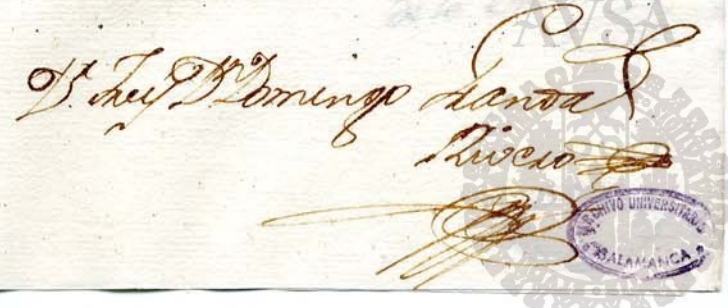 AVSA
Dr. Frey Dn. Domingo Landa
Rivero
ARCHIVO UNIVERSITARIO
SALAMANCA